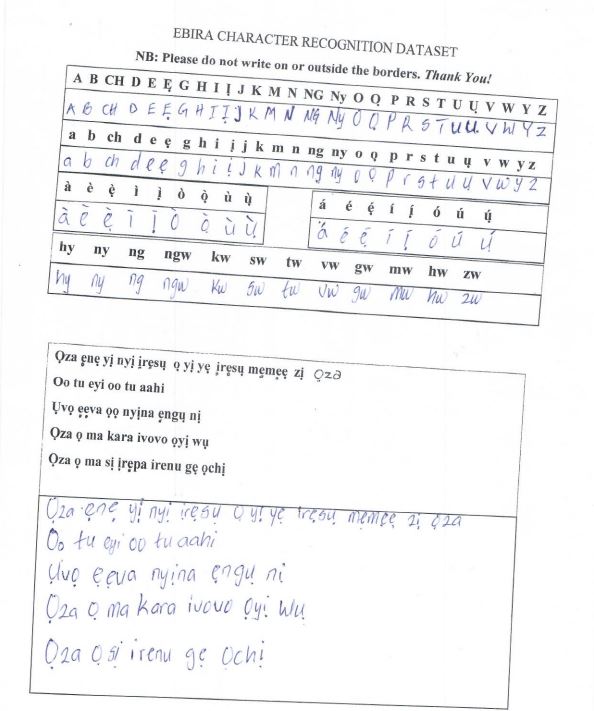 EBIRA CHARACTER RECOGNITION DATASET
NB: Please do not write on or outside the borders. Thank You!
A B CH D E Ẹ G H I Ị J K M N NG Ny O Ọ P R S T U Ụ V W Y Z
A B CH D E Ẹ G H I Ị J K M N NG Ny O Ọ P R S T U Ụ V W Y Z
a b ch d e ẹ g h i ị j k m n ng ny o ọ p r s t u ụ v w y z
a b ch d e ẹ g h i ị j k m n ng ny o ọ p r s t u ụ v w y z
à è ẹ̀ ì ị̀ ò ọ̀ ù ụ̀
à è ẹ̀ ì ị̀ ò ọ̀ ù ụ̀
á é ẹ́ í ị́ ó ú ụ́
á é ẹ́ í ị́ ó ú ụ́
hy ny ng ngw kw sw tw vw gw mw hw zw
hy ny ng ngw kw sw tw vw gw mw hw zw
Ọza ẹnẹ yị nyị ịrẹsụ ọ yị yẹ ịrẹsụ mẹmẹẹ zị ọza
Oo tu eyi oo tu aahi
Ụvọ ẹẹva ọọ nyịna ẹngụ nị
Ọza ọ ma kara ivovo ọyị wụ
Ọza ọ ma sị ịrẹpa irenu gẹ ọchị
Ọza ẹnẹ yị nyị ịrẹsụ ọ yị yẹ ịrẹsụ mẹmẹẹ zị ọza
Oo tu eyi oo tu aahi
Ụvọ ẹẹva nyịna ẹngụ nị
Ọza ọ ma kara ivovo ọyị wụ
Ọza ọ sị irenu gẹ ọchị